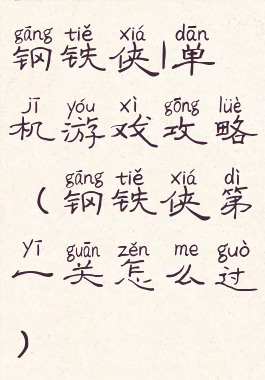 gāng tiě xiá dān
钢铁侠|单
jī yóu xì gōng lüè
机游戏攻略
gāng tiě xiá dì
(钢铁侠第
yī guān zěn me guò
一关怎么过
)